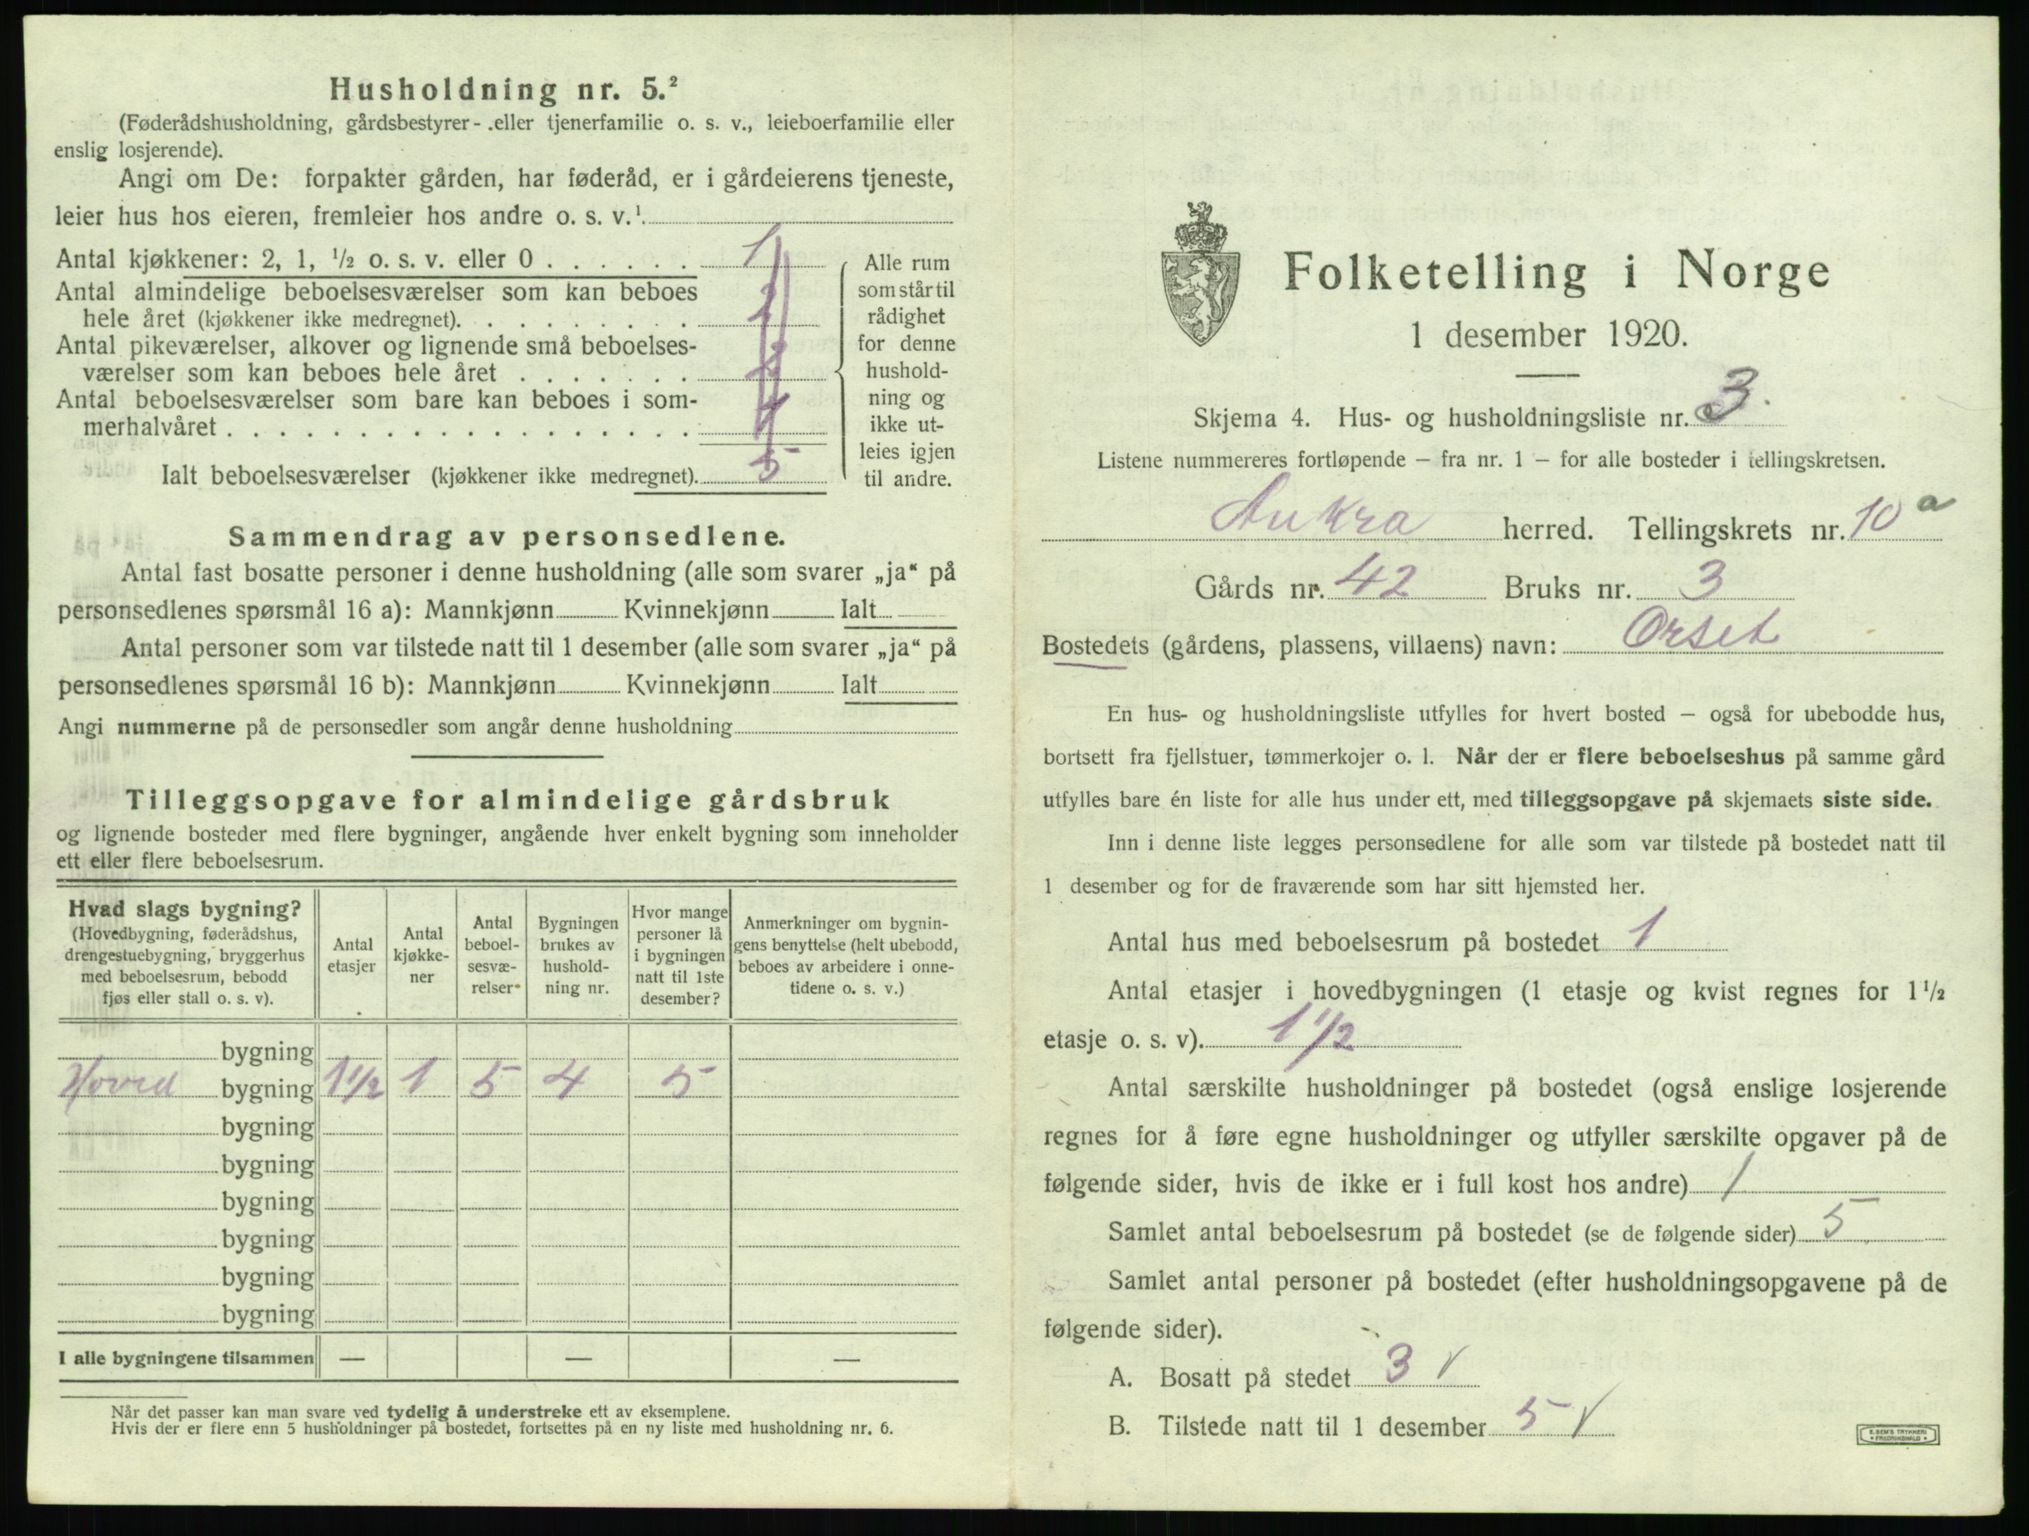 Husholdning nr. 5.²
(Føderådshusholdning, gårdsbestyrer- .eller tjenerfamilie o. s. v., leieboerfamilie eller
enslig losjerende).
Angi om De: forpakter gården, har føderåd, er i gårdeierens tjeneste,
leier hus hos eieren, fremleier hos andre o. s. v.¹
Antal kjøkkener: 2, 1, ½ o. s. v. eller 0 . . . . . . 1
Antal almindelige beboelsesværelser som kan beboes
hele året (kjøkkener ikke medregnet). . . . . . . . . 2
Antal pikeværelser, alkover og lignende små beboelses-
værelser som kan beboes hele året . . . . . . . 2
Antal beboelsesværelser som bare kan beboes i som-
merhalvåret . . . . . . . . . . . . . . . . . . 1
Ialt beboelsesværelser (kjøkkener ikke medregnet). 5
Alle rum
som står til
rådighet
for denne
hushold-
ning og
ikke ut-
leies igjen
til andre.
Sammendrag av personsedlene.
Antal fast bosatte personer i denne husholdning (alle som svarer „ja“ på
personsedlenes spørsmål 16 a): Mannkjønn Kvinnekjønn Ialt
Antal personer som var tilstede natt til 1 desember (alle som svarer „ja“ på
personsedlenes spørsmål 16 b): Mannkjønn Kvinnekjønn Ialt
Angi nummerne på de personsedler som angår denne husholdning
Tilleggsopgave for almindelige gårdsbruk
og lignende bosteder med flere bygninger, angående hver enkelt bygning som inneholder
ett eller flere beboelsesrum.
Hvad slags bygning?
(Hovedbygning, føderådshus,
drengestuebygning, bryggerhus
med beboelsesrum, bebodd
fjøs eller stall o. s. v).
Antal
etasjer
Antal
kjøkke-
ner
Antal
beboel-
sesvæ-
relser
Bygningen
brukes av
hushold-
ning nr.
Hvor mange
personer lå
i bygningen
natt til 1ste
desember?
Anmerkninger om bygnin-
gens benyttelse (helt ubebodd,
beboes av arbeidere i onne-
tidene o. s. v.)
bygning
Hoved bygning 1½ 1 5 4 5
bygning
bygning
bygning
bygning
bygning
bygning
I alle bygningene tilsammen — — —
Når det passer kan man svare ved tydelig å understreke ett av eksemplene.
Hvis der er flere enn 5 husholdninger på bostedet, fortsettes på en ny liste med husholdning nr. 6.
Folketelling i Norge
1 desember 1920.
Skjema 4. Hus- og husholdningsliste nr. 3.
Listene nummereres fortløpende – fra nr. 1 – for alle bosteder i tellingskretsen.
Aukra herred. Tellingskrets nr. 10 a
Gårds nr. 42 Bruks nr. 3
Bostedets (gårdens, plassens, villaens) navn: Orset
En hus- og husholdningsliste utfylles for hvert bosted – også for ubebodde hus,
bortsett fra fjellstuer, tømmerkojer o. l. Når der er flere beboelseshus på samme gård
utfylles bare én liste for alle hus under ett, med tilleggsopgave på skjemaets siste side.
Inn i denne liste legges personsedlene for alle som var tilstede på bostedet natt til
1 desember og for de fraværende som har sitt hjemsted her.
Antal hus med beboelsesrum på bostedet 1
Antal etasjer i hovedbygningen (1 etasje og kvist regnes for 1½
etasje o. s. v). 1½
Antal særskilte husholdninger på bostedet (også enslige losjerende
regnes for å føre egne husholdninger og utfyller særskilte opgaver på de
følgende sider, hvis de ikke er i full kost hos andre) 1
Samlet antal beboelsesrum på bostedet (se de følgende sider) 5
Samlet antal personer på bostedet (efter husholdningsopgavene på de
følgende sider).
A. Bosatt på stedet 3 √
B. Tilstede natt til 1 desember 5 √
E. SEM'S TRYKKERI
• FREDRIKSHALD •